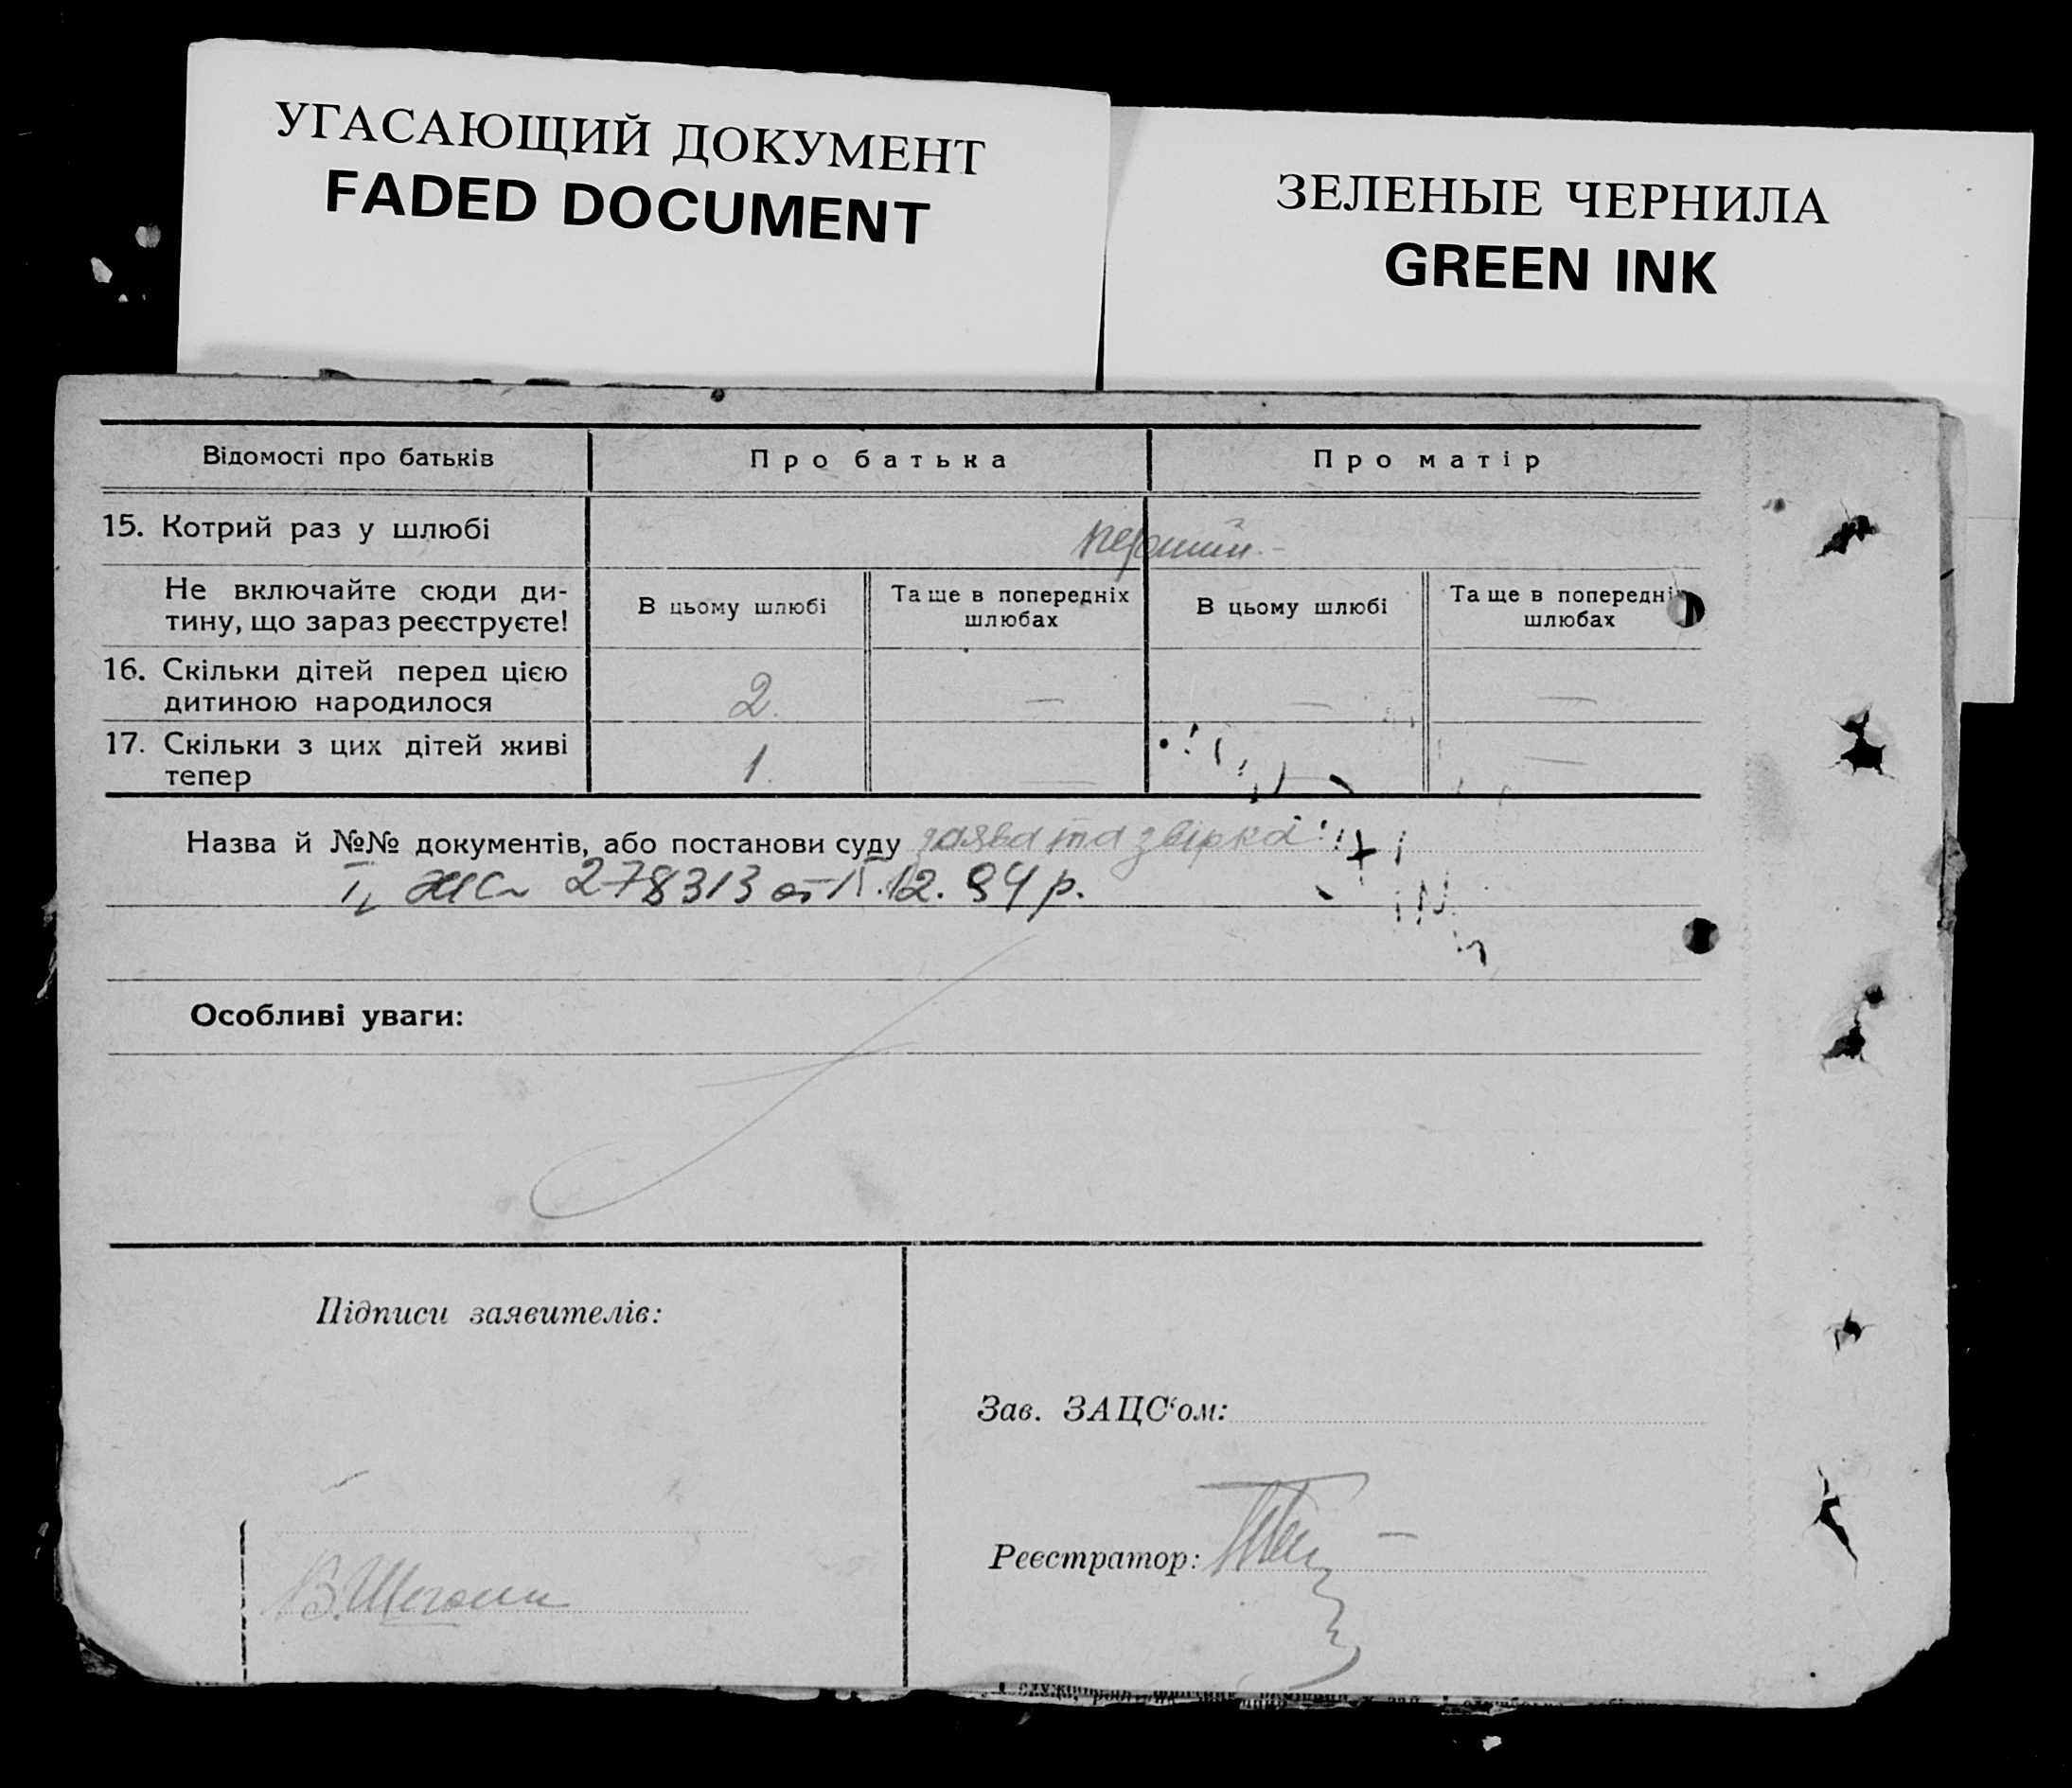 УГАСАЮЩИЙ ДОКУМЕНТ
FADED DOCUMENT
ЗЕЛЕНЫЕ ЧЕРНИЛА
GREEN INK
Відомості про батьків
Про батька
Про матір
15. Котрий раз у шлюбі
перший.-
Не включайте сюди ди-
тину, що зараз реєструєте!
В цьому шлюбі
Та ще в попередніх
шлюбах
В цьому шлюбі
Та ще в попередніх
шлюбах
16. Скільки дітей перед цією
дитиною народилося
2.
—
—
—
17. Скільки з цих дітей живі
тепер
1.
—
—
—
Назва й №№ документів, або постанови суду заява та звірка
278313 от 15.12.94 р.
Особливі уваги:
Підписи заявителів:
Зав. ЗАЦС'ом:
Реєстратор: